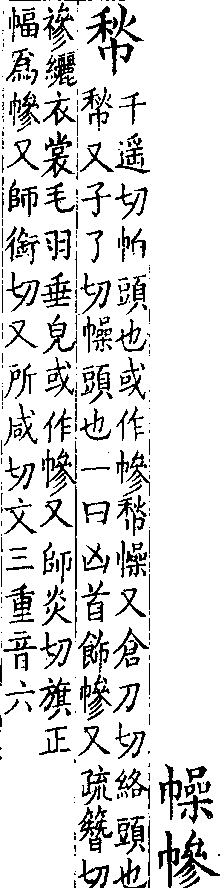 幧幓
千遥切帕頭也或作幓幧又倉刀切絡頭也
又子了切幧頭也一曰凶首飾幓又疏簪切
襂纚衣裳毛羽垂皃或作幓又師炎切旗正
幅爲幓又師銜切又所咸切文三重音六